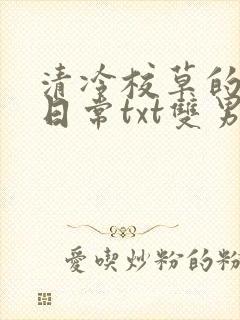 清冷校草的
日常txt雙男
愛喫炒粉的粉